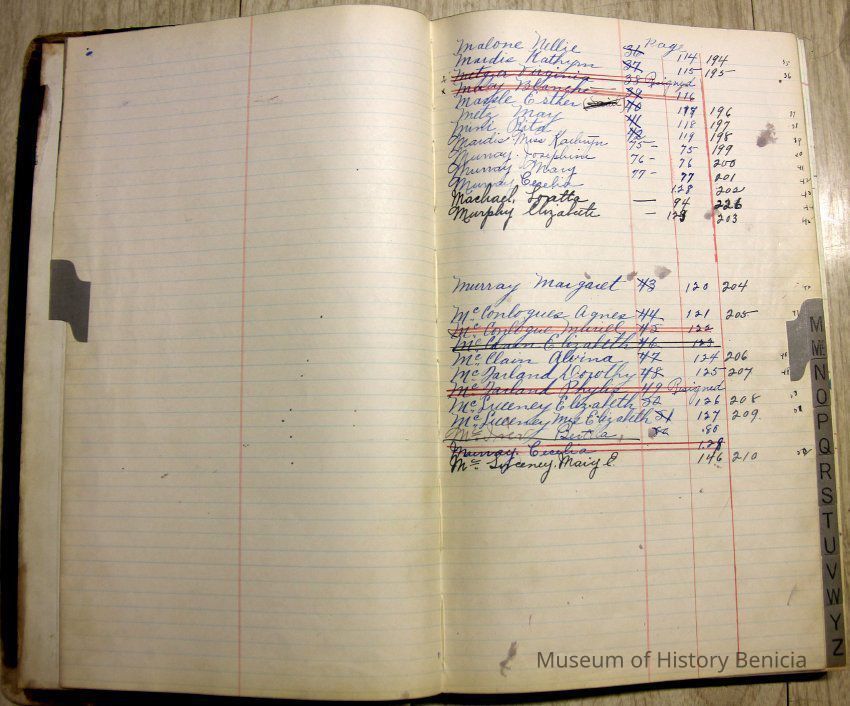 Page
Malone Nellie 36 114 194
Mardis Kathryn 37 115 195
Virginia 38 Resigned
Blanche 39 116
Esther 40 117 196
Metz May 41 118 197
Rita 42 119 198
Mardis Miss Kathryn 75- 75 199
Murray Josephine 76- 76 200
Murray Mary 77- 77 201
Murray Cecelia 128 202
Machael, Loretta — 94 226
Murphy Elizabeth — 129 203
Murray Margaret 43 120 204
Mc Conlogue Agnes 44 121 205
Mc Conlogue Muriel 45 122
Mc Elizabeth 46 123
Mc Clain Alvina 47 124 206
Mc Farland Dorothy 48 125 207
Mc Farland Phylis 49 Resigned
Mc Sweeney Elizabeth 50 126 208
Mc Sweeney Mrs Elizabeth 51 127 209
Bertha 52 80
Murray Cecilia 128
Mc Sweeney, Mary E. 146 210
M
Mc
N
O
P
Q
R
S
T
U
V
W
Y
Z
Museum of History Benicia